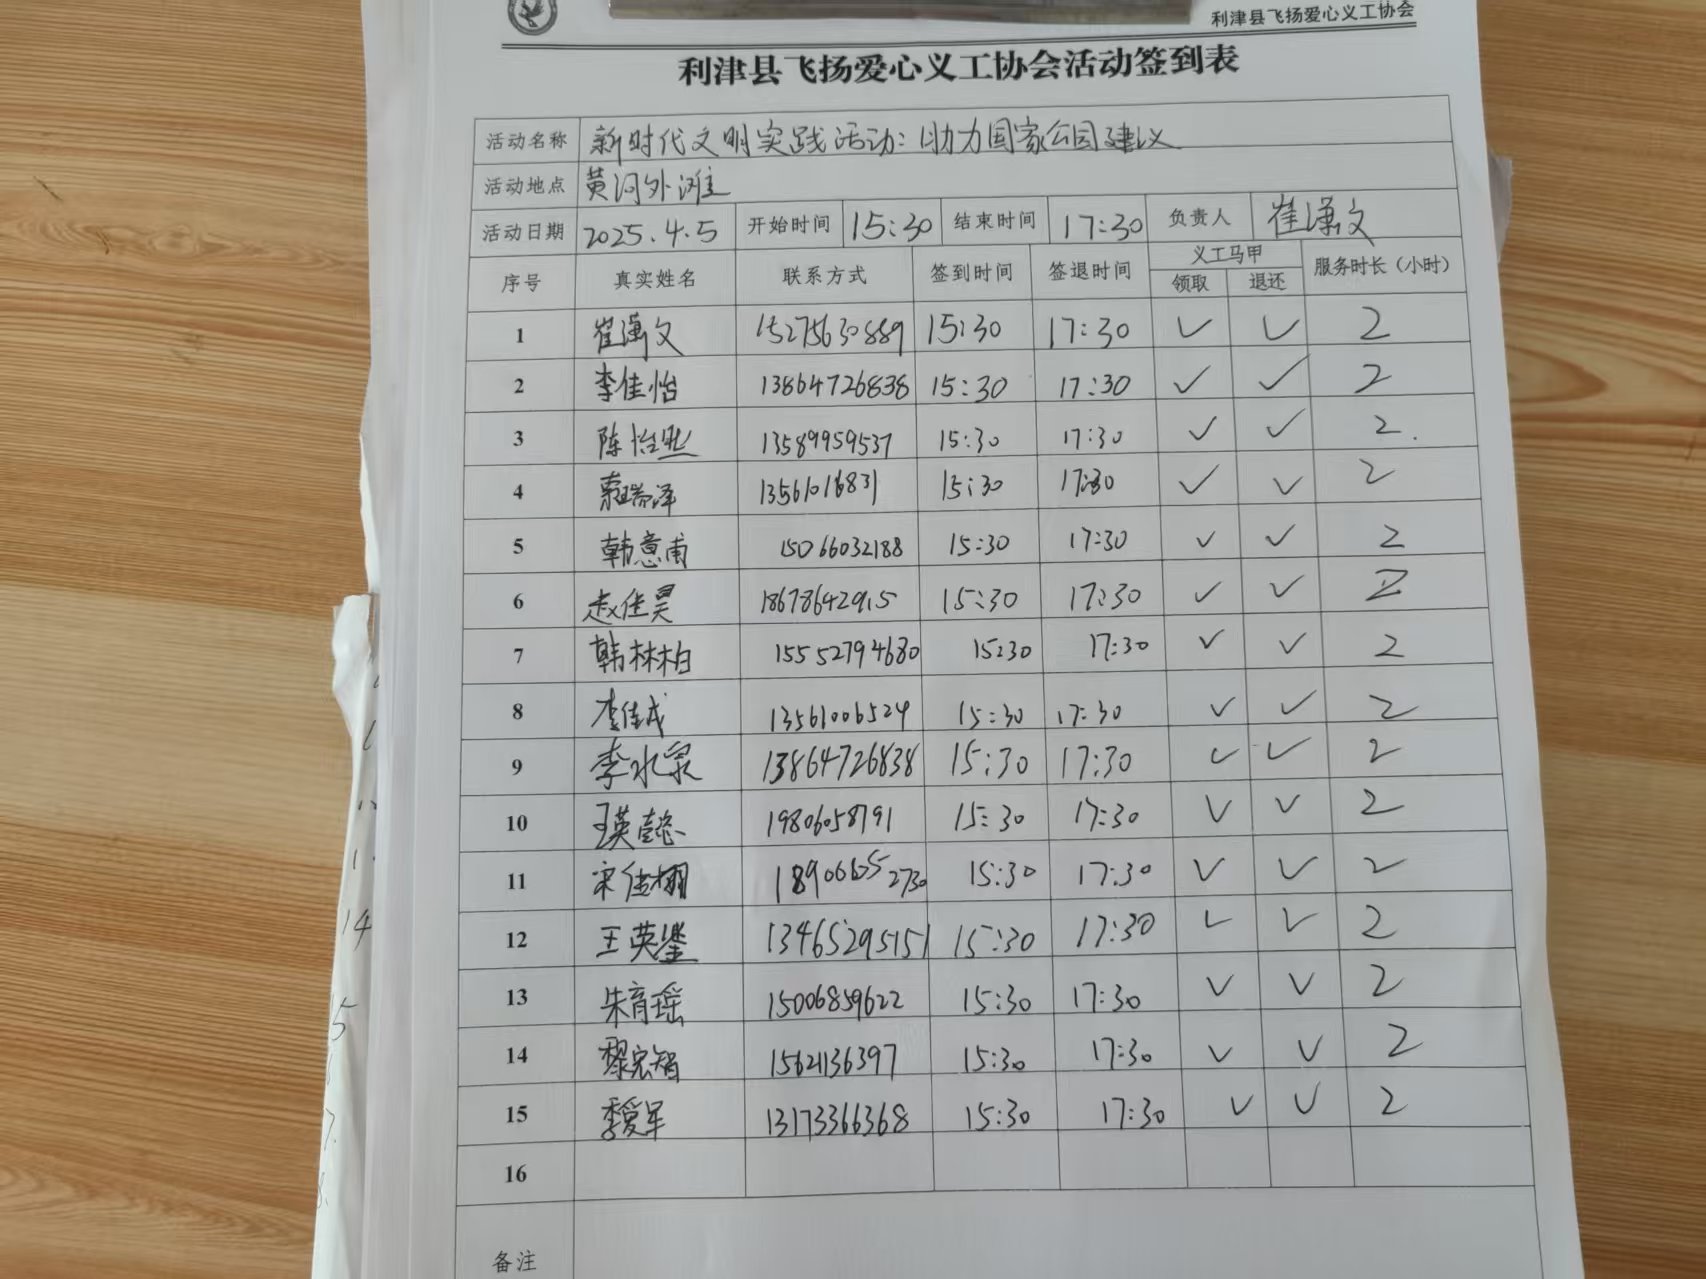 利津县飞扬爱心义工协会
利津县飞扬爱心义工协会活动签到表
活动名称 新时代文明实践活动:助力国家公园建议
活动地点 黄河外滩
活动日期 2025.4.5 开始时间 15:30 结束时间 17:30 负责人 崔潇文
序号 真实姓名 联系方式 签到时间 签退时间 义工马甲 服务时长(小时)
领取 退还
1 崔潇文 15275630889 15:30 17:30 ✓ ✓ 2
2 李佳怡 13864726838 15:30 17:30 ✓ ✓ 2
3 陈怡然 13589959537 15:30 17:30 ✓ ✓ 2.
4 瑞泽 13561016831 15:30 17:30 ✓ ✓ 2
5 韩意甫 15066032188 15:30 17:30 ✓ ✓ 2
6 赵佳昊 18678642915 15:30 17:30 ✓ ✓ 2
7 韩林柏 15552794680 15:30 17:30 ✓ ✓ 2
8 李佳成 13561006524 15:30 17:30 ✓ ✓ 2
9 李水泉 13864726838 15:30 17:30 ✓ ✓ 2
10 王英懿 19806058791 15:30 17:30 ✓ ✓ 2
11 宋佳栩 15:30 17:30 ✓ ✓ 2
12 王英鉴 13465295151 15:30 17:30 ✓ ✓ 2
13 朱育瑶 15006859622 15:30 17:30 ✓ ✓ 2
14 黎宏智 15621136397 15:30 17:30 ✓ ✓ 2
15 季爱军 13173366368 15:30 17:30 ✓ ✓ 2
16
备注